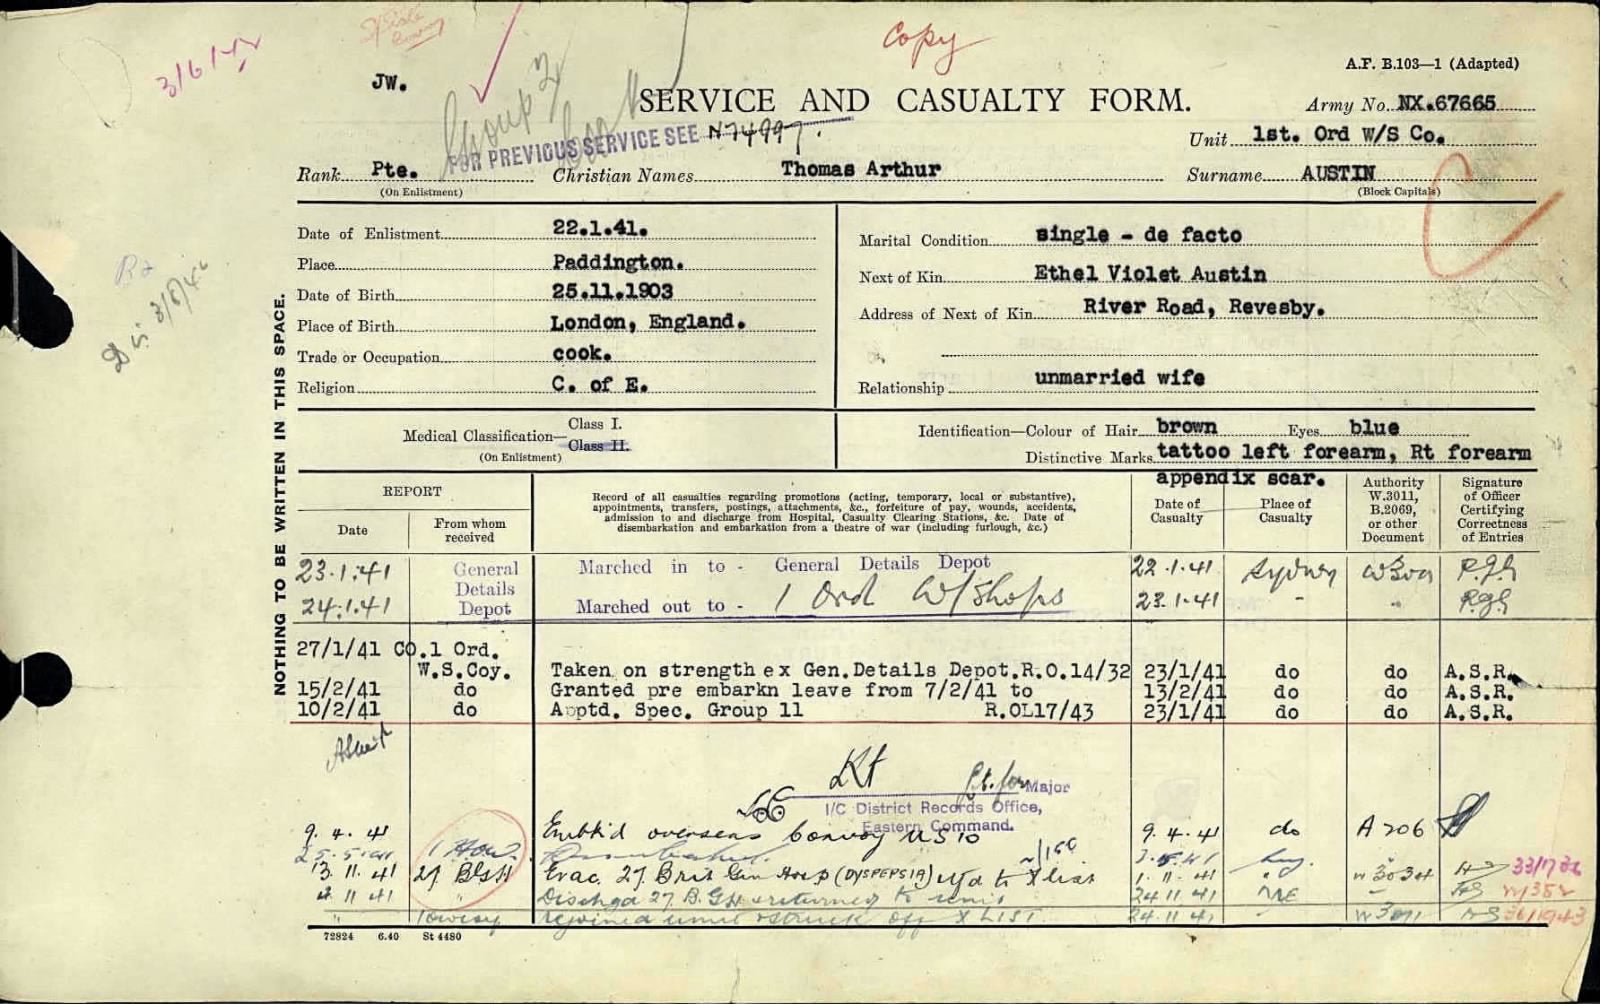 3/6/42
Copy
A.F. B.103—1 (Adapted)
JW.
Group 2
SERVICE AND CASUALTY FORM.
Army No. NX.67665
FOR PREVIOUS SERVICE SEE N74997.
Unit 1st. Ord W/S Co.
Rank Pte. Christian Names Thomas Arthur Surname AUSTIN
(On Enlistment) (Block Capitals)
Date of Enlistment 22.1.41.
Place Paddington.
Date of Birth 25.11.1903
Place of Birth London, England.
Trade or Occupation cook.
Religion C. of E.
Marital Condition single - de facto
Next of Kin Ethel Violet Austin
Address of Next of Kin River Road, Revesby.
Relationship unmarried wife
NOTHING TO BE WRITTEN IN THIS SPACE.
Medical Classification— Class I.
(On Enlistment) Class II.
Identification—Colour of Hair brown Eyes blue
Distinctive Marks tattoo left forearm, Rt forearm
appendix scar.
REPORT
Date
From whom received
Record of all casualties regarding promotions (acting, temporary, local or substantive),
appointments, transfers, postings, attachments, &c., forfeiture of pay, wounds, accidents,
admission to and discharge from Hospital, Casualty Clearing Stations, &c. Date of
disembarkation and embarkation from a theatre of war (including furlough, &c.)
Date of Casualty
Place of Casualty
Authority W.3011, B.2069, or other Document
Signature of Officer Certifying Correctness of Entries
23.1.41 General Marched in to - General Details Depot 22.1.41 Sydney
Details
24.1.41 Depot Marched out to - 1 Ord W/Shops 23.1.41
27/1/41 CO.1 Ord.
W.S.Coy. Taken on strength ex Gen.Details Depot.R.O.14/32 23/1/41 do do A.S.R.
15/2/41 do Granted pre embarkn leave from 7/2/41 to 13/2/41 do do A.S.R.
10/2/41 do Apptd. Spec. Group 11 R.OL17/43 23/1/41 do do A.S.R.
Major
I/C District Records Office,
Eastern Command.
9.4.41 Embk'd overseas Convoy US10 9.4.41 do A206
13.11.41 27 BGH Evac. 27 Brit Gen Hosp (DYSPEPSIA) to X list 1.11.41 W3034
11 41 Dischgd 27 B.GH & returned to unit 24 11 41 ME
" rejoined unit & struck off X LIST 24.11 41 W3011
72824 6.40 St 4480